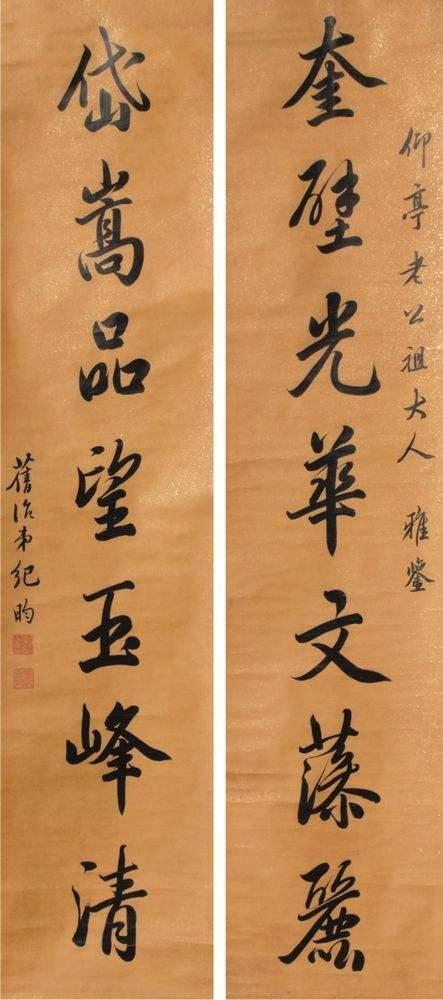 仰亭老公祖大人　雅鑒
奎壁光華文藻麗
岱嵩品望玉峰清
舊治弟紀昀